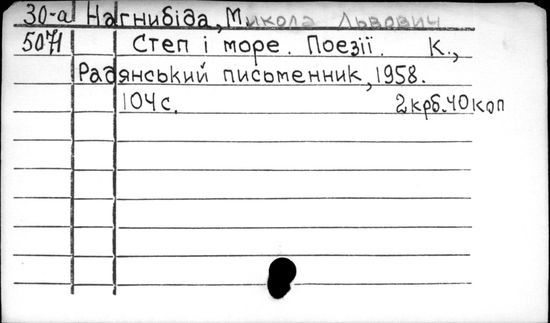 30-а Нагнибіда, Микола Львович
5071 Степ і море. Поезії. К.,
Радянський письменник, 1958.
104 с. 2 крб. 40 коп